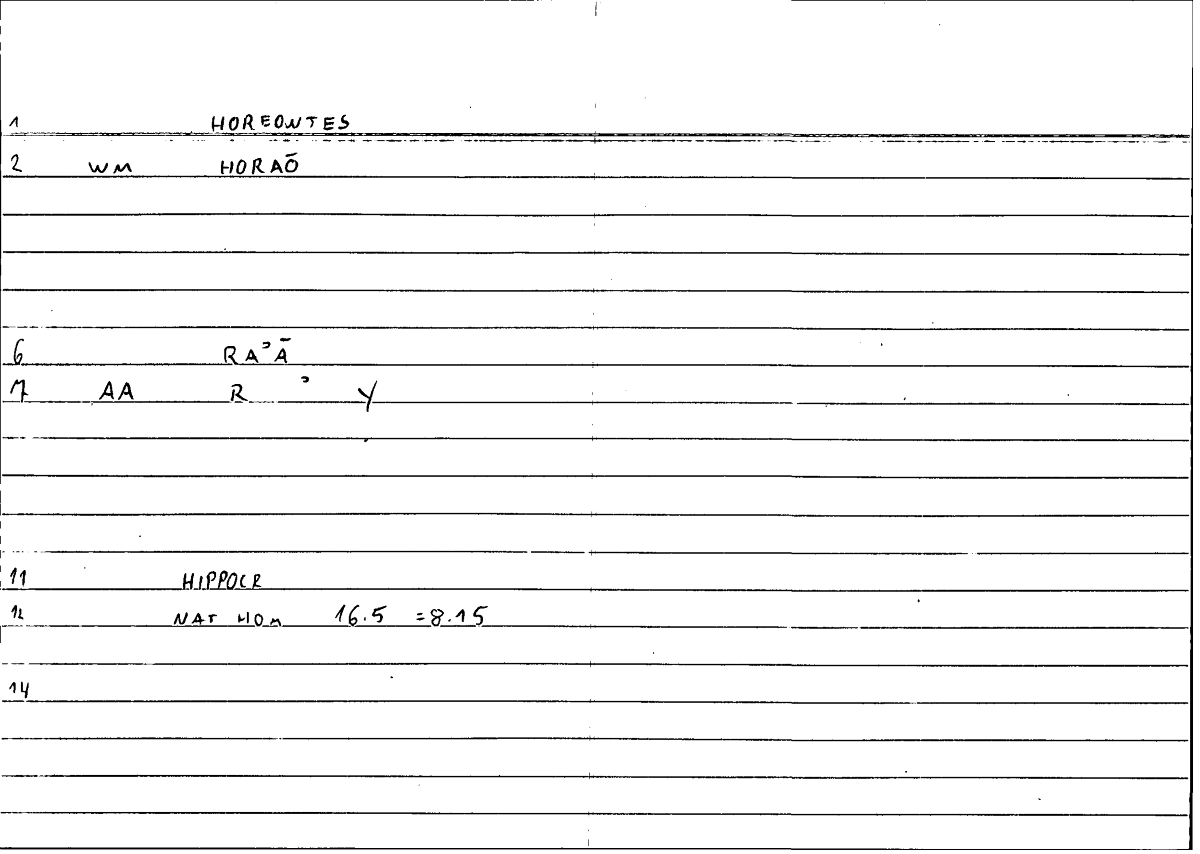 1 HOREONTES
2 WM HORAŌ
6 RAᵓĀ
7 AA R ᵓ Y
11 HIPPOCR
12 NAT HOM 16.5 =8.15
14